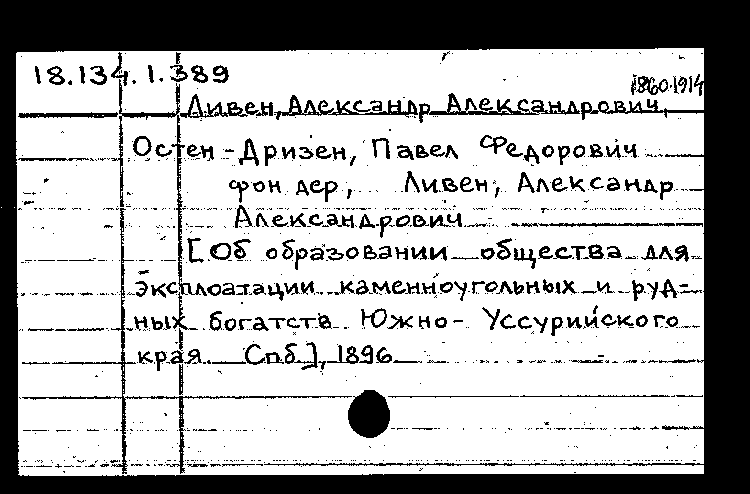 18.134.1.389
1860-1914
Ливен, Александр Александрович,
Остен-Дризен, Павел Федорович
фон дер, Ливен, Александр
Александрович
[Об образовании общества для
эксплоатации каменноугольных и руд-
ных богатств Южно-Уссурийского
края. Спб.], 1896